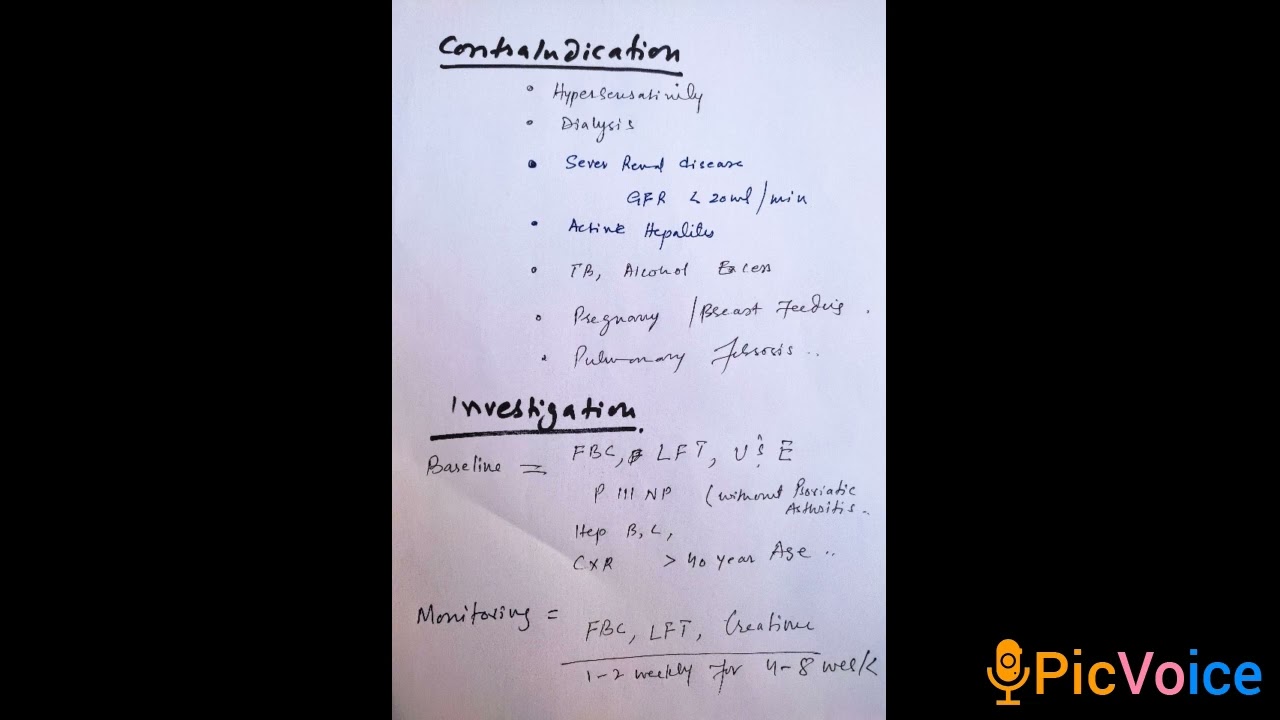 ContraIndication
• Hypersensativily
• Dialysis
• Sever Renal disease
GFR < 20ml/min
• Active Hepalites
• TB, Alcohol Excess
• Pregnany /Breast Feeding.
• Pulmonary Fibrosis..
Investigation.
Baseline = FBC, LFT, U & E
P III NP (without Psoriatic
Arthritis..
Hep B, C,
CXR > 40 year Age ..
Monitoring = FBC, LFT, Creatinine
1-2 weekly for 4-8 week
PicVoice